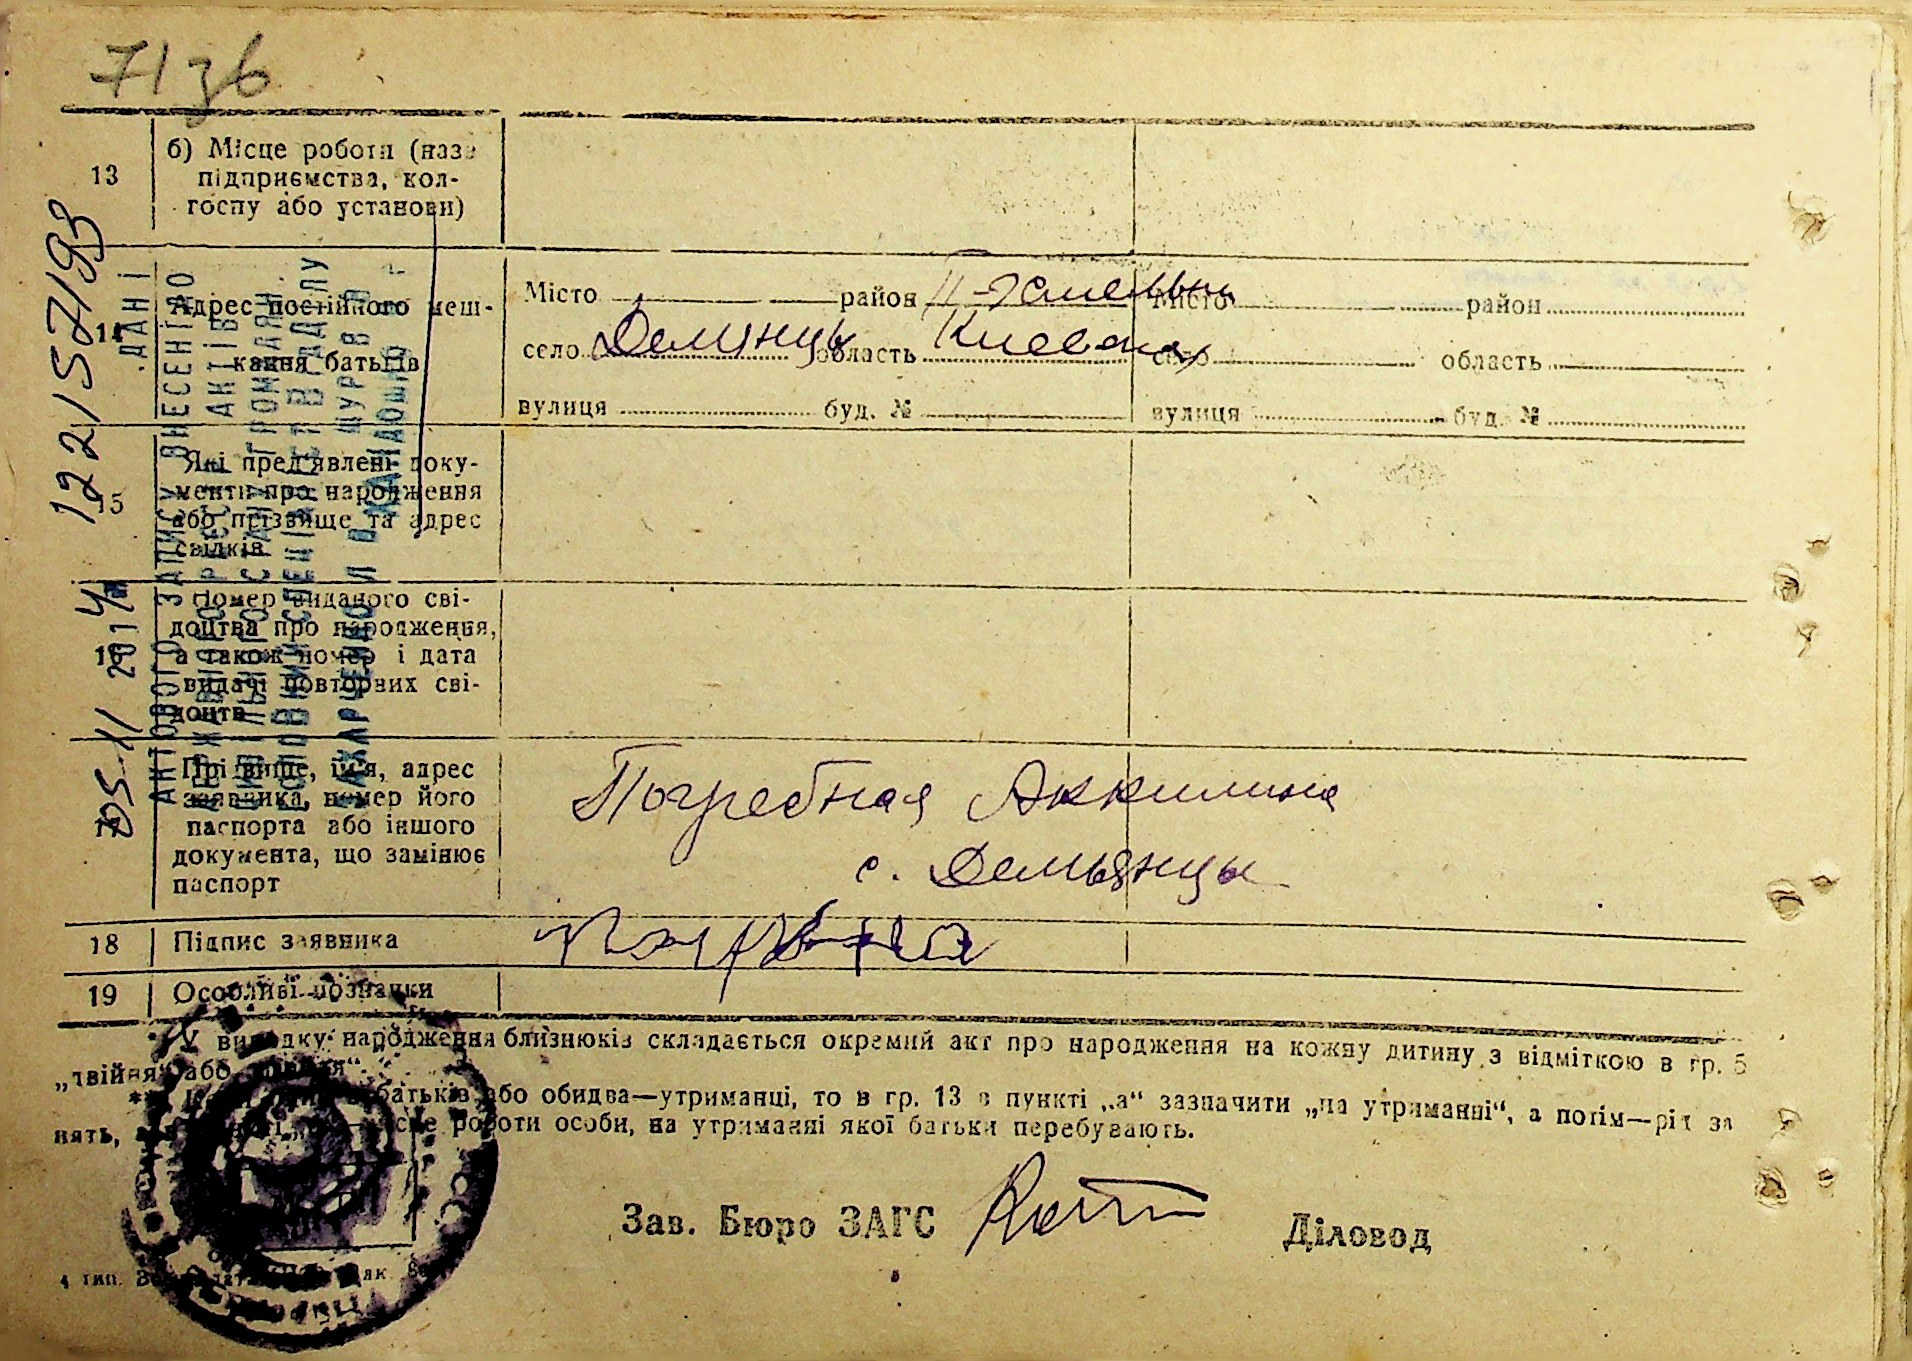 71зв
13
б) Місце роботи (назв
підприємства, кол-
госпу або установи)
14
Адрес постійного меш-
кання батьків
Місто район П-Хмельн
село Демянцы область Киевская
вулиця буд. №
Місто район
село область
вулиця буд. №
15
Які пред'явлені доку-
менти про народження
або прізвище та адрес
свідків
16
Номер виданого сві-
доцтва про народження,
а також номер і дата
видачі повторних сві-
доцтв
17
Прізвище, ім'я, адрес
заявника, номер його
паспорта або іншого
документа, що замінює
паспорт
Погребная Аккилина
с. Демьянцы
18
Підпис заявника
19
Особливі позначки
У випадку народження близнюків складається окремий акт про народження на кожну дитину з відміткою в гр. 5
„двійня“ або
батьків або обидва—утриманці, то в гр. 13 в пункті „а“ зазначити „на утриманні“, а потім—рід за
нять, роботи особи, на утриманні якої батьки перебувають.
Зав. Бюро ЗАГС
Діловод
4 тип.
ДАНІ
АКТОВОГО ЗАПИСУ ВНЕСЕНІ ДО
ДЕРЖАВНОГО РЕЄСТРУ АКТІВ
ЦИВІЛЬНОГО СТАНУ ГРОМАДЯН.
ЗАХАРЧЕНКО Л О
05 XI 2014
122/57193